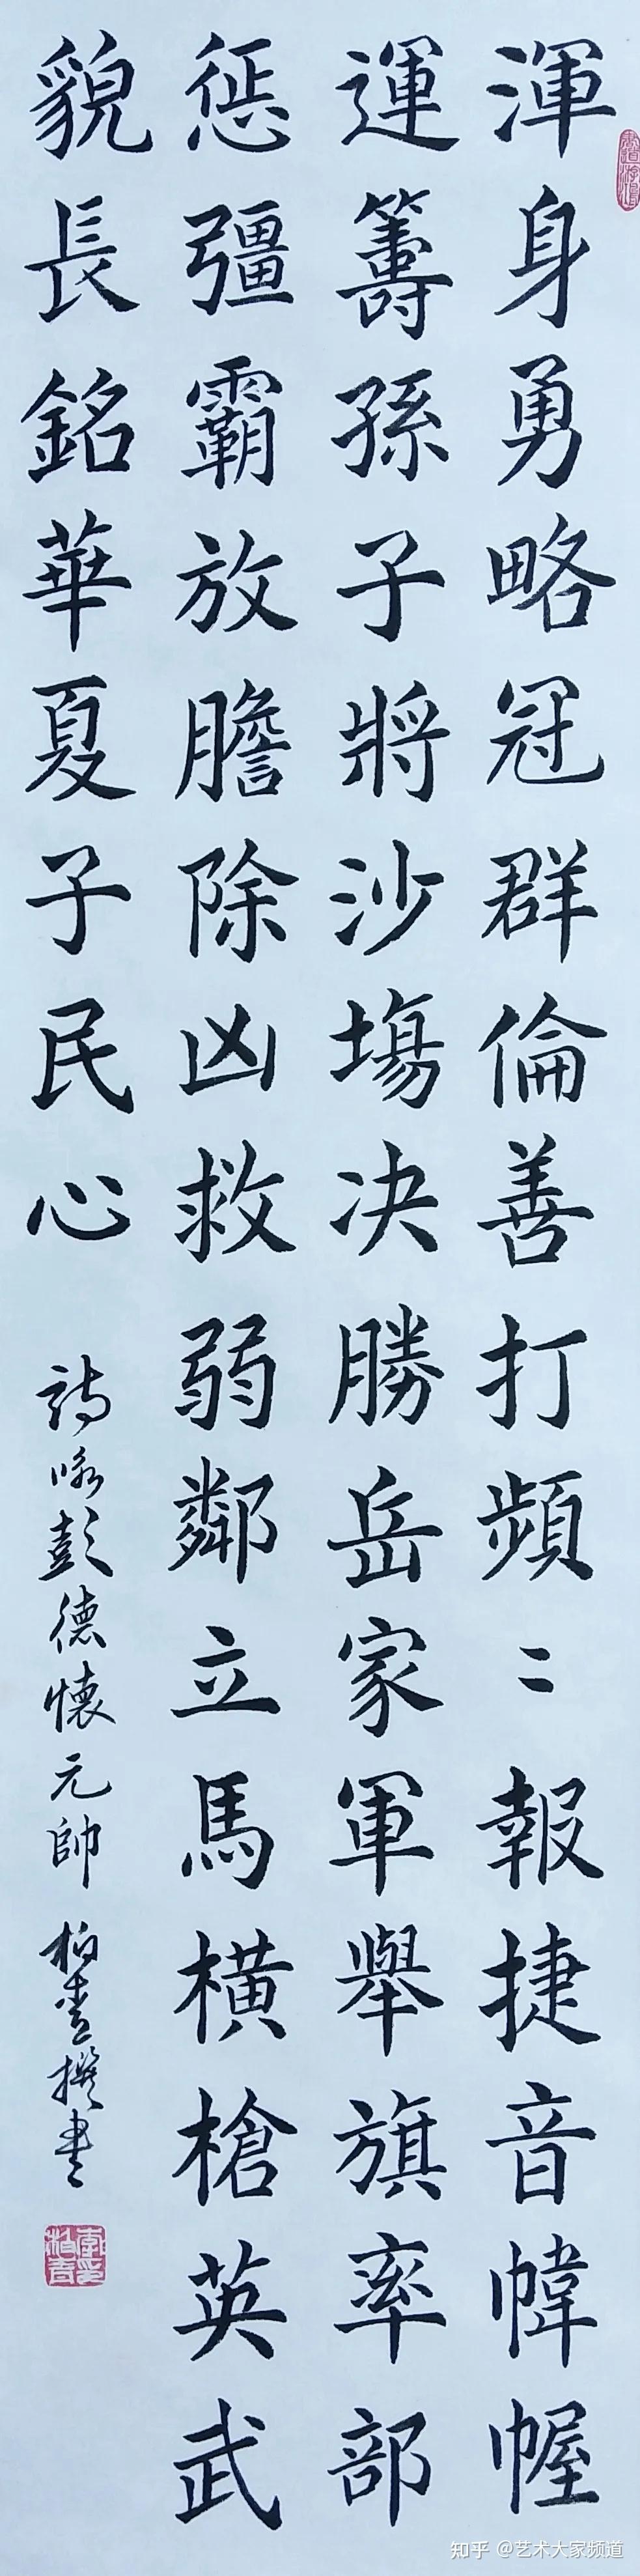 渾身勇略冠群倫善打頻〻報捷音幃幄
運籌孫子將沙場决勝岳家軍舉旗率部
惩彊霸放膽除凶救弱鄰立馬橫槍英武
貌長銘華夏子民心
詩咏彭德懷元帥 柏青撰書
知乎 @艺术大家频道